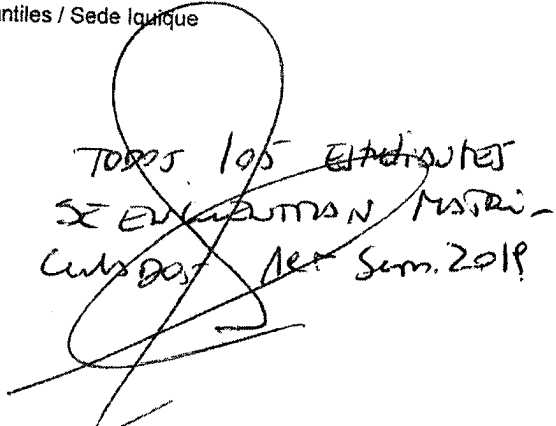 ntiles / Sede Iquique
TODOS los ESTUDIANTES
SE ENCUENTRAN MATRI-
CULADOS 1er Sem. 2019